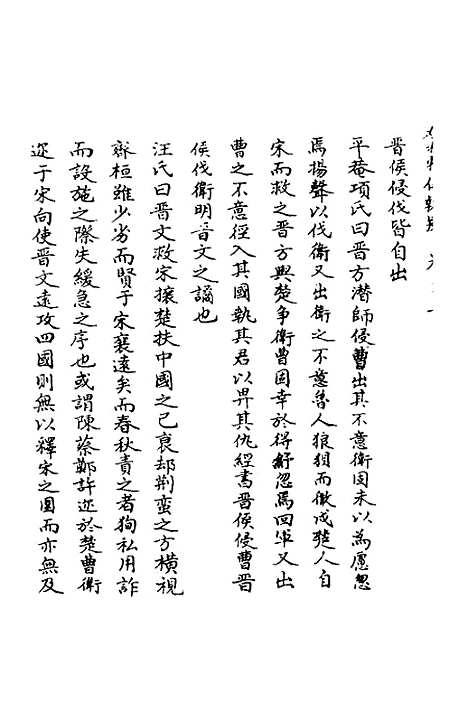 晋侯侵伐皆自出
平菴項氏曰晋方潜師侵曹出其不意衛固未以為慮忽
焉揚聲以伐衛又出衛之不意魯人狼狽而徹戍楚人自
宋而救之晋方與楚争衛曹固幸於得紓忽焉回軍又出
曹之不意徑入其國執其君以畀其仇經書晋侯侵曹晋
侯伐衛明晋文之譎也
汪氏曰晋文救宋攘楚扶中國之已衰却荆蛮之方横視
齊桓雖少劣而賢于宋襄遠矣而春秋責之者狥私用詐
而設施之際失緩急之序也或謂陳蔡鄭許迩於楚曹衛
迩于宋向使晋文遠攻四國則無以釋宋之圍而亦無及